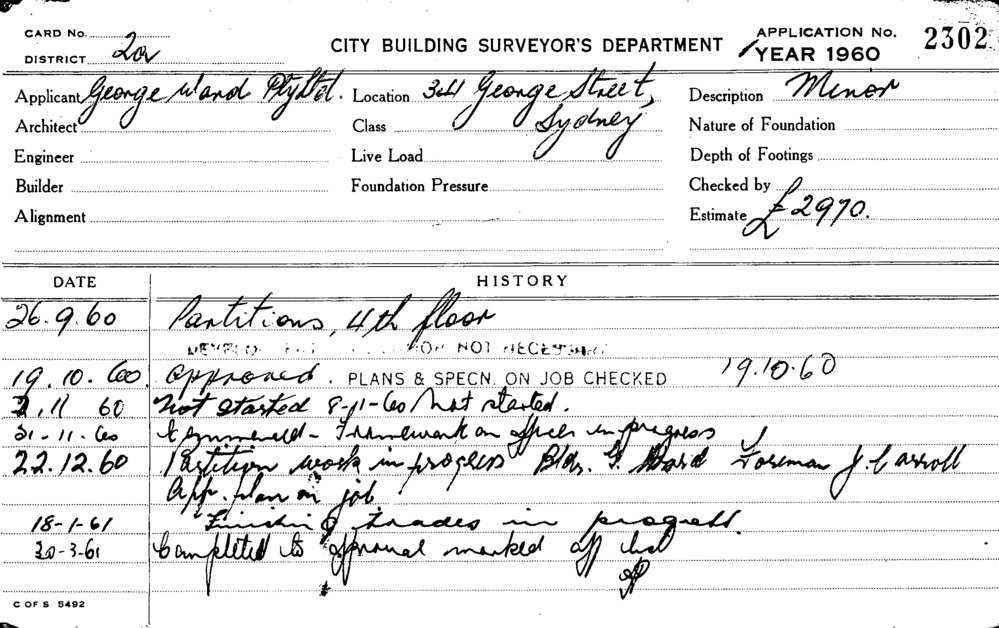 CARD No.
DISTRICT 2a
CITY BUILDING SURVEYOR'S DEPARTMENT
APPLICATION No. 2302
YEAR 1960
Applicant George Ward Pty Ltd. Location 34 George Street, Sydney
Description Minor
Architect Class Nature of Foundation
Engineer Live Load Depth of Footings
Builder Foundation Pressure Checked by
Alignment Estimate £2970.
DATE HISTORY
26.9.60 Partitions, 4th floor
NOT NECESSARY
19.10.60 Approved. PLANS & SPECN. ON JOB CHECKED 19.10.60
2.11 60 Not Started 8-11-60 / Not started.
21-11-60 Commenced - Framework on offices in progress
22.12.60 Partition work in progress Bldr. G. Ward Foreman J. Carroll
App. plan on job
18-1-61 Finishing trades in progress.
20-3-61 Completed to approval marked off
C OF S 5492